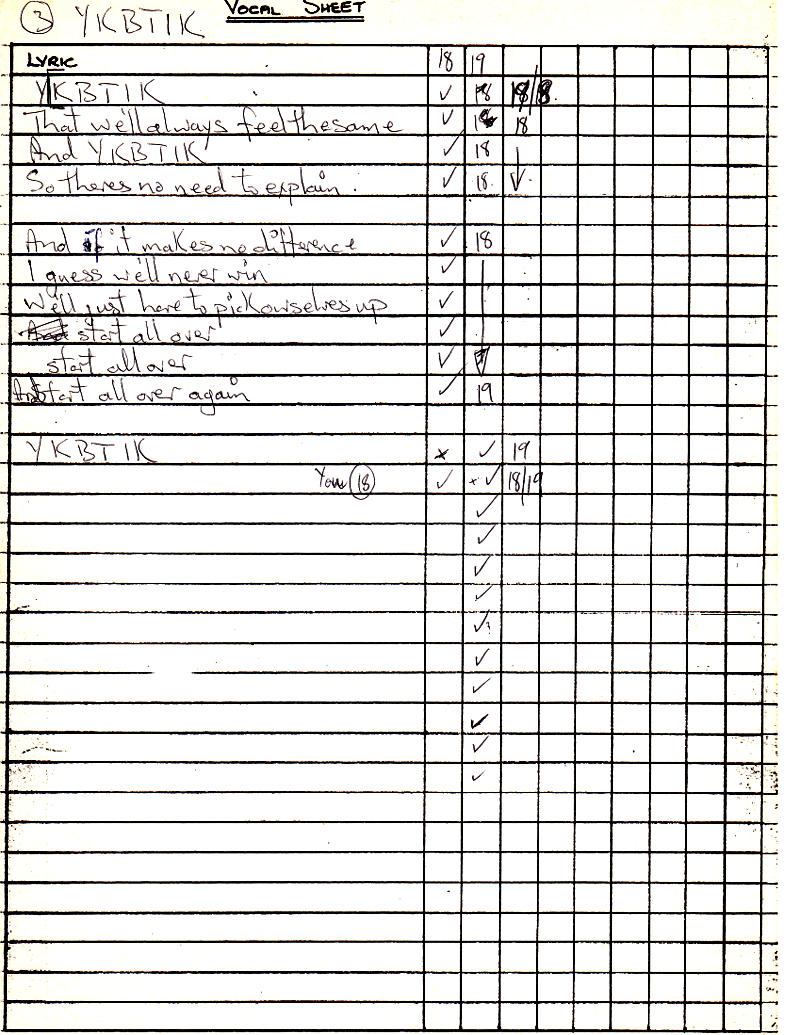 ③ YKBTIK VOCAL SHEET
LYRIC 18 19
YKBTIK ✓ 18 18/8.
That we'll always feel the same ✓ 18 18
And YKBTIK ✓ 18
So theres no need to explain. ✓ 18.
And if it makes no difference ✓ 18
I guess we'll never win ✓
We'll just have to pick ourselves up ✓
start all over ✓
start all over ✓
And start all over again ✓ 19
YKBTIK × ✓ 19
You ⑱ ✓ × ✓ 18/19
✓
✓
✓
✓
✓
✓
✓
✓
✓
✓